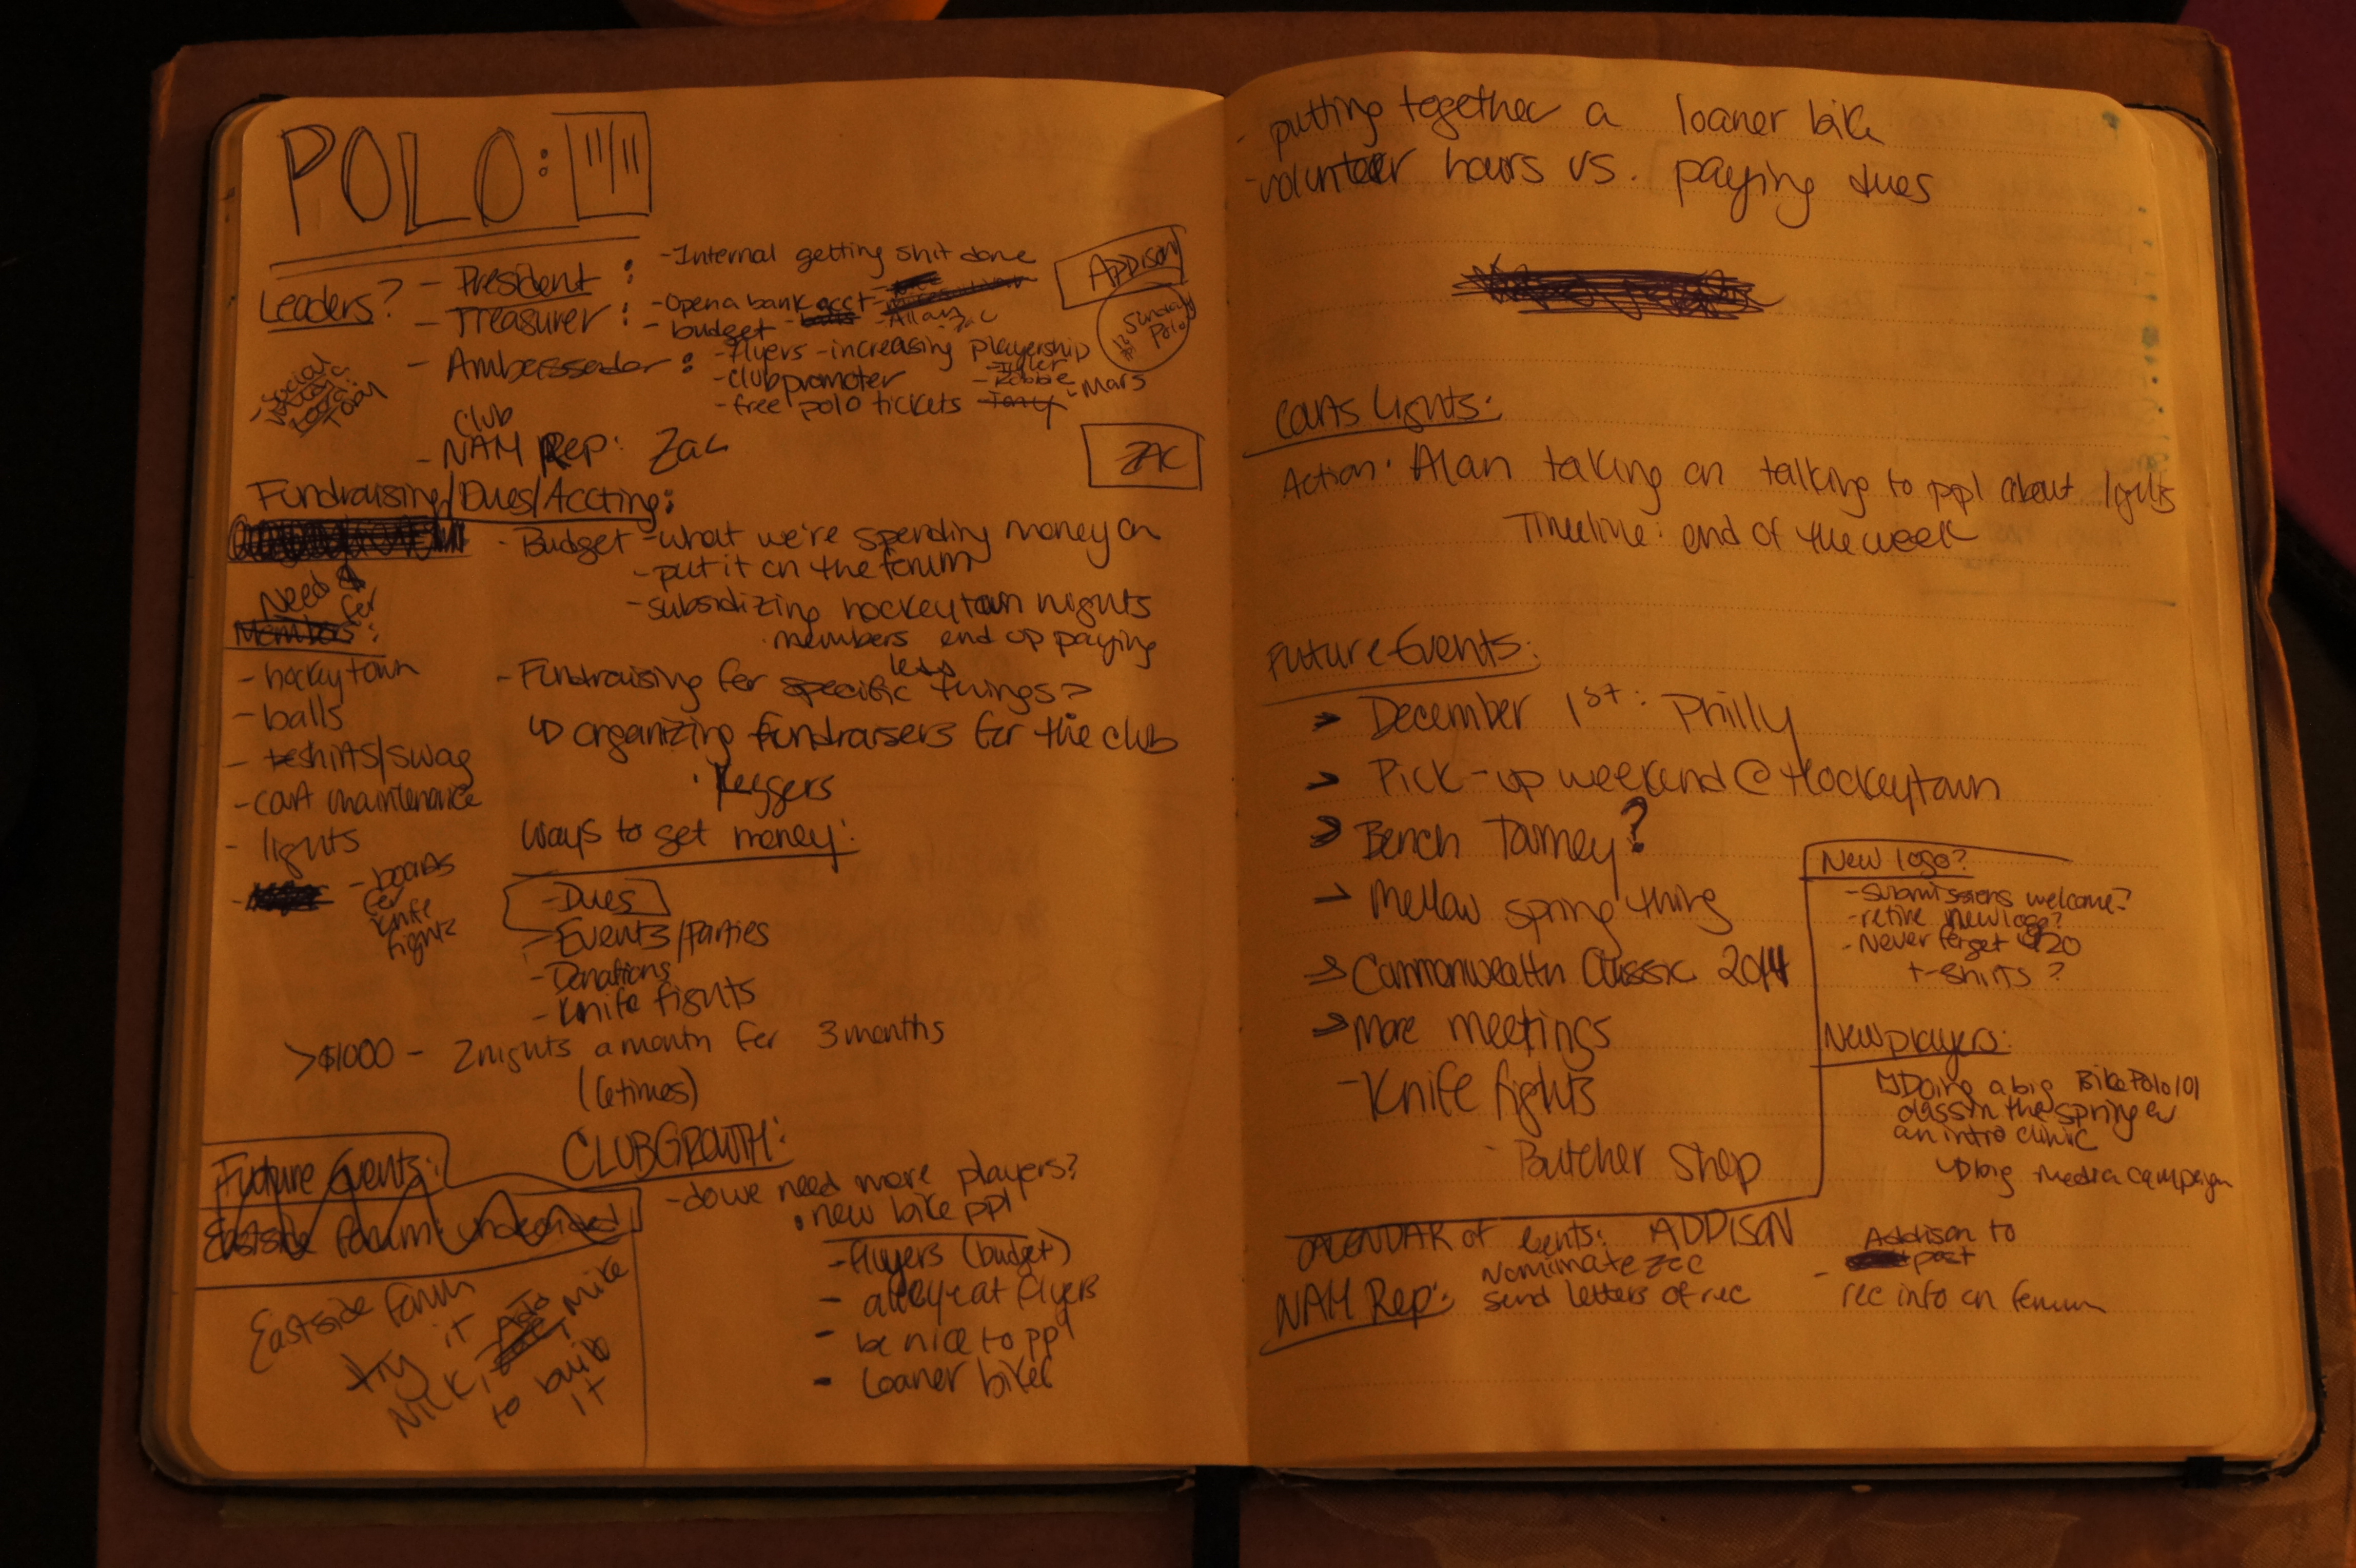 POLO: 11/11
Leaders?
- President : - Internal getting shit done
ADDISON
- Treasurer : - Open a bank acct
- budget - Allan
Sunday Polo
- Ambassador : - flyers - increasing playership
- club promoter - Tyler
- Robbie - Mars
- free polo tickets - Tony
- Social
Tony
Club
- NAH Rep: Zac
ZAC
Fundraising/Dues/Accting:
- Budget - what we're spending money on
- put it on the forum
- subsidizing hockeytown nights
· members end up paying
less
Need $ for
Members:
- hockytown
- balls
- teshirts/swag
- court maintenance
- lights
- boards
for
knife
fights
- Fundraising for specific things?
↳ organizing fundraisers for the club
· Keggers
Ways to get money:
- Dues
- Events/Parties
- Donations
- Knife fights
>$1000 - 2 nights a month for 3 months
(6 times)
Future Events:
Eastside forum: undecided
Eastside forum
try it
Nick, Mike
to build
it
CLUB GROWTH:
- do we need more players?
· new bike ppl
- flyers (budget)
- alleycat flyers
- be nice to ppl
- loaner bikes
- putting together a loaner bike
- volunteer hours vs. paying dues
Courts Lights:
Action: Alan taking on talking to ppl about lights
Timeline: end of the week
Future Events:
> December 1st: Philly
> Pick-up weekend @ Hockeytown
> Bench Tourney?
> Mellow spring thing
> Commonwealth Classic 2014
> More meetings
- Knife fights
- Butcher Shop
New logo?
- submissions welcome?
- retire new logo?
- Never forget 920
t-shirts?
New players:
↳ Doing a big Bike Polo 101
class in the spring or
an intro clinic
↳ big media campaign
CALENDAR of Events: ADDISON
NAH Rep: Nominate Zac
send letters of rec
- Addison to
post
rec info on forum